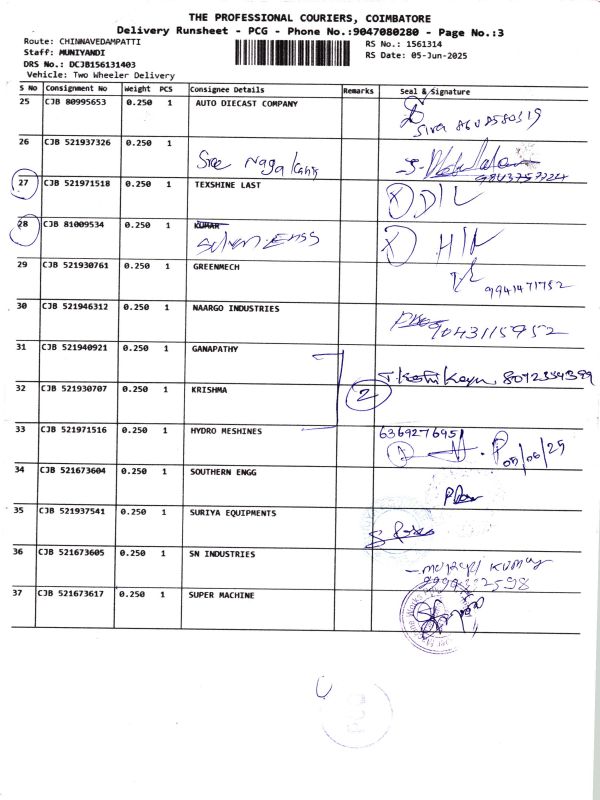 THE PROFESSIONAL COURIERS, COIMBATORE
Delivery Runsheet - PCG - Phone No.:9047080280 - Page No.:3
Route: CHINNAVEDAMPATTI
RS No.: 1561314
Staff: MUNIYANDI
RS Date: 05-Jun-2025
DRS No.: DCJB156131403
Vehicle: Two Wheeler Delivery
S No Consignment No Weight PCS Consignee Details Remarks Seal & Signature
25 CJB 80995653 0.250 1 AUTO DIECAST COMPANY
Siva
26 CJB 521937326 0.250 1 Sree Naga
9843757224
27 CJB 521971518 0.250 1 TEXSHINE LAST
D/L
28 CJB 81009534 0.250 1 KUMAR
29 CJB 521930761 0.250 1 GREENMECH
9941471752
30 CJB 521946312 0.250 1 NAARGO INDUSTRIES
9043115952
31 CJB 521940921 0.250 1 GANAPATHY
8072334399
32 CJB 521930707 0.250 1 KRISHMA 2
33 CJB 521971516 0.250 1 HYDRO MESHINES 6369276951
05/06/25
34 CJB 521673604 0.250 1 SOUTHERN ENGG
35 CJB 521937541 0.250 1 SURIYA EQUIPMENTS
36 CJB 521673605 0.250 1 SN INDUSTRIES
KUMAR
37 CJB 521673617 0.250 1 SUPER MACHINE